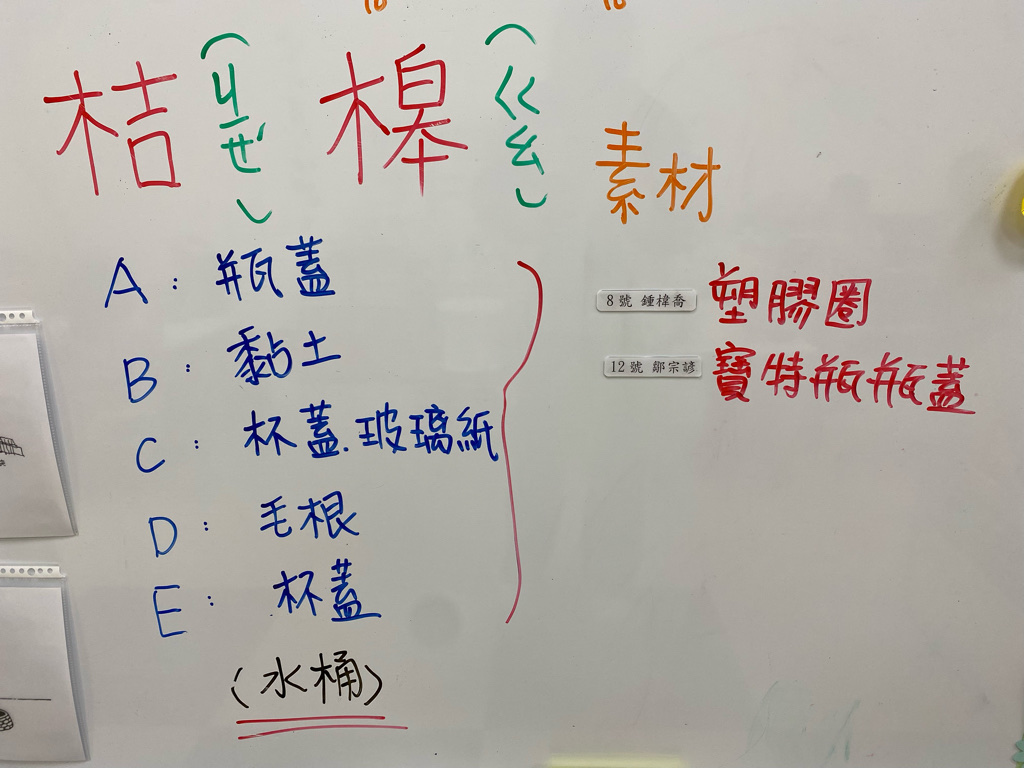 桔(ㄐㄧㄝˊ)槔(ㄍㄠ)
素材
A：瓶蓋
B：黏土
C：杯蓋.玻璃紙
D：毛根
E：杯蓋
(水桶)
8號 鍾樟喬 塑膠圈
12號 鄒宗諺 寶特瓶瓶蓋